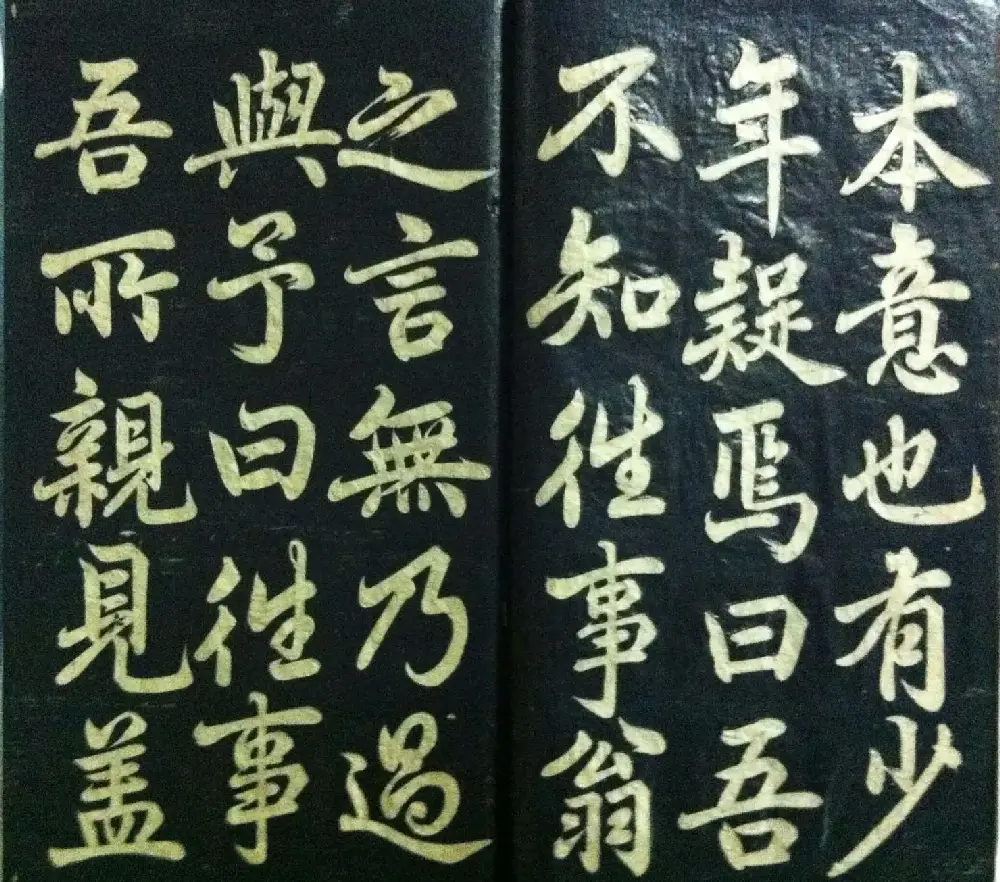 本意也有少
年疑焉曰吾
不知徃事翁
之言無乃過
與予曰徃事
吾所親見盖